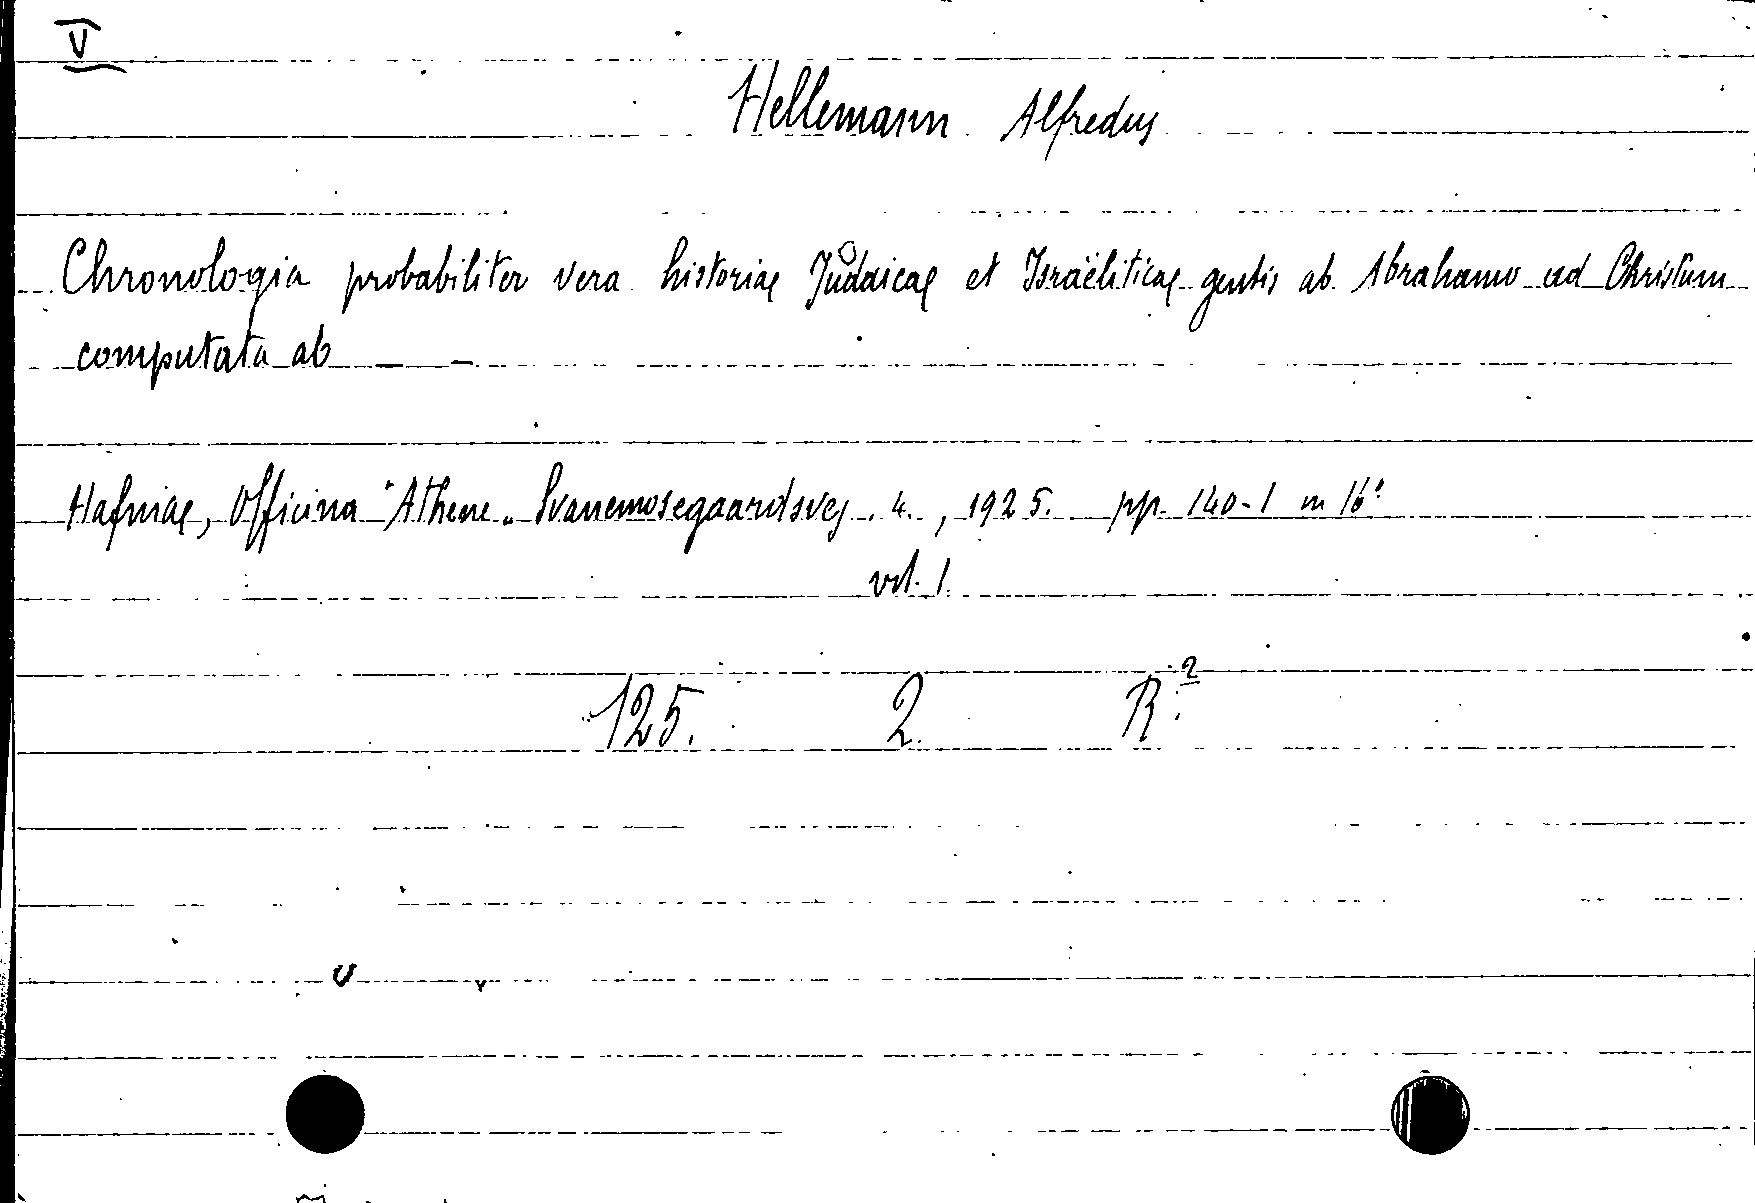 V
Hellemann Alfredus
Chronologia probabiliter vera historiae Judaicae et Israëliticae gentis ab Abrahamo ad Christum
computata ab — –
Hafniae, Officina "Athene" Svanemosegaardsvej 4., 1925. pp. 140-1 in 16°
vol. 1.
125. 2. R.2